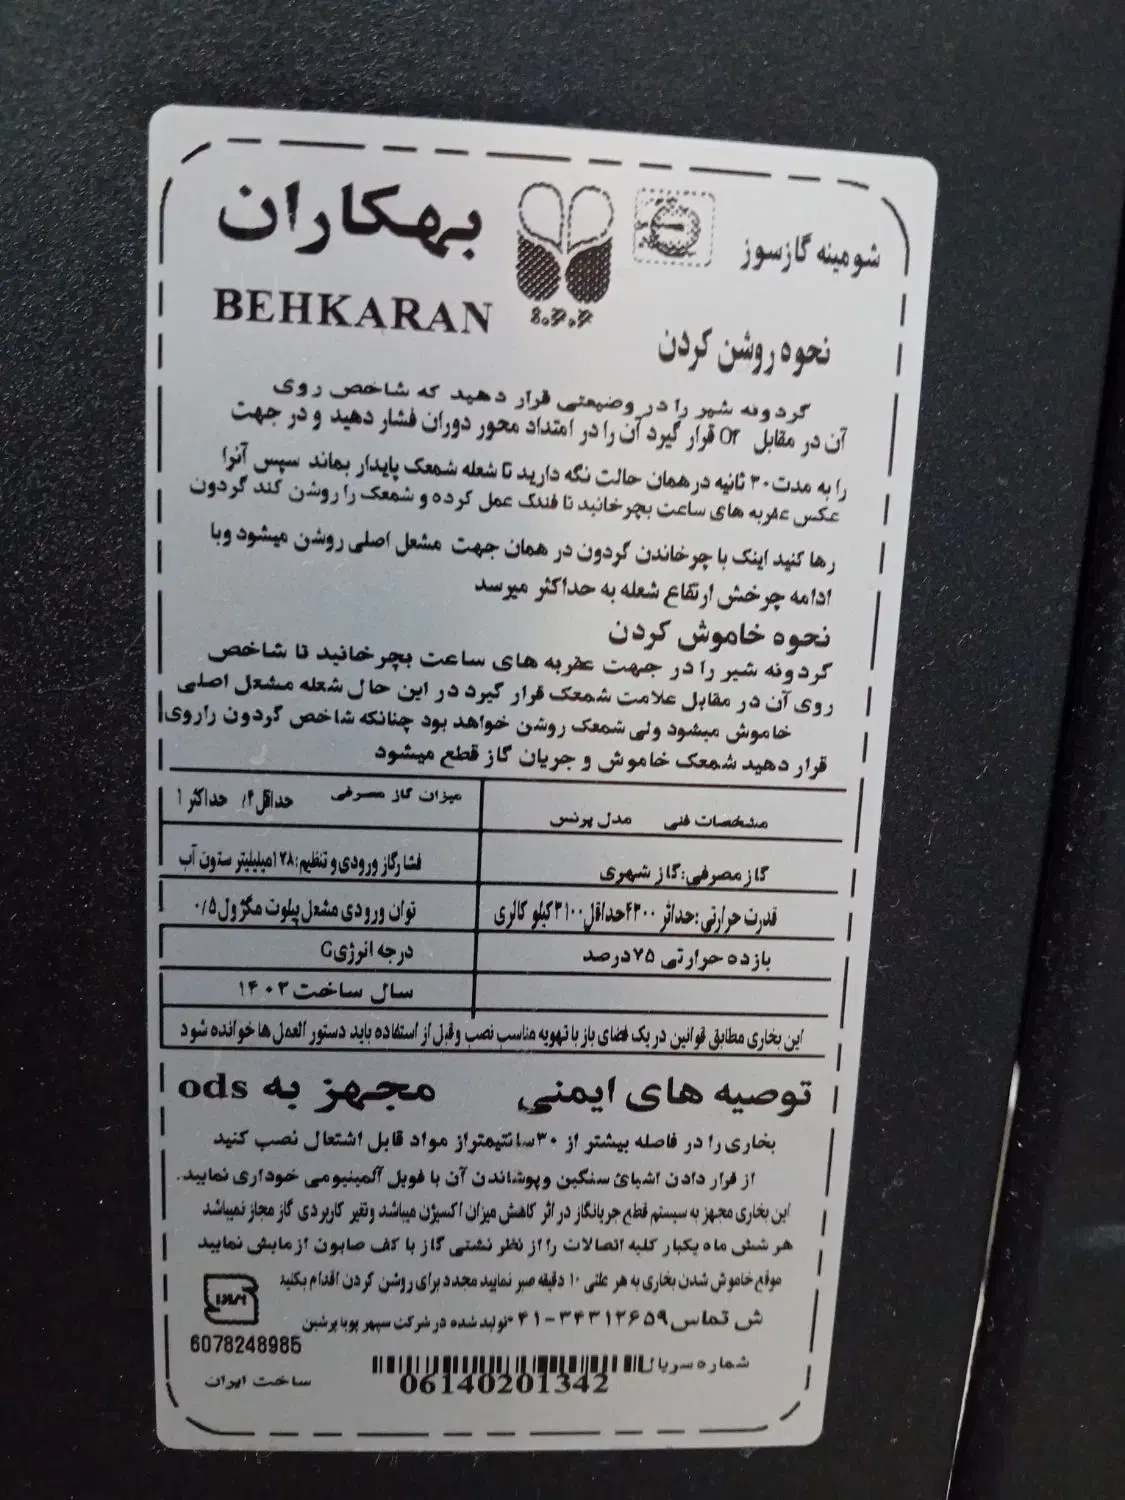 شومینه گازسوز
بهکاران
BEHKARAN
نحوه روشن کردن
گردونه شیر را در وضیعتی قرار دهید که شاخص روی
آن در مقابل Of قرار گیرد آن را در امتداد محور دوران فشار دهید و در جهت
را به مدت ۳۰ ثانیه درهمان حالت نگه دارید تا شعله شمعک پایدار بماند سپس آنرا
عکس عقربه های ساعت بچرخانید تا فندک عمل کرده و شمعک را روشن کند گردون
رها کنید اینک با چرخاندن گردون در همان جهت مشعل اصلی روشن میشود وبا
ادامه چرخش ارتفاع شعله به حداکثر میرسد
نحوه خاموش کردن
گردونه شیر را در جهت عقربه های ساعت بچرخانید تا شاخص
روی آن در مقابل علامت شمعک قرار گیرد در این حال شعله مشعل اصلی
خاموش میشود ولی شمعک روشن خواهد بود چنانکه شاخص گردون راروی
قرار دهید شمعک خاموش و جریان گاز قطع میشود
مشخصات فنی مدل پرنس
میزان گاز مصرفی حداقل ۴/ حداکثر ۱
گاز مصرفی:گاز شهری
فشارگاز ورودی و تنظیم:۱۷۸میلیلیتر ستون آب
قدرت حرارتی:حداثر ۴۳۰۰حداقل۳۱۰۰کیلو کالری
توان ورودی مشعل پیلوت مگژول۰/۵
بازده حرارتی ۷۵درصد
درجه انرژیG
سال ساخت ۱۴۰۳
این بخاری مطابق قوانین در یک فضای باز با تهویه مناسب نصب وقبل از استفاده باید دستور العمل ها خوانده شود
توصیه های ایمنی مجهز به ods
بخاری را در فاصله بیشتر از ۳۰سانتیمتراز مواد قابل اشتعال نصب کنید
از قرار دادن اشیائ سنگین وپوشاندن آن با فویل آلمینیومی خوداری نمایید.
این بخاری مجهز به سیستم قطع جریانگاز در اثر کاهش میزان اکسیژن میباشد وتغیر کاربردی گاز مجاز نمیباشد
هر شش ماه یکبار کلیه اتصالات را از نظر نشتی گاز با کف صابون ازمایش نمایید
موقع خاموش شدن بخاری به هر علتی ۱۰ دقیقه صبر نمایید مجدد برای روشن کردن اقدام بکنید
ش تماس ۳۴۳۱۲۶۵۹-۰۴۱ تولید شده در شرکت سپهر پویا پرشین
6078248985
شماره سریال
06140201342
ساخت ایران